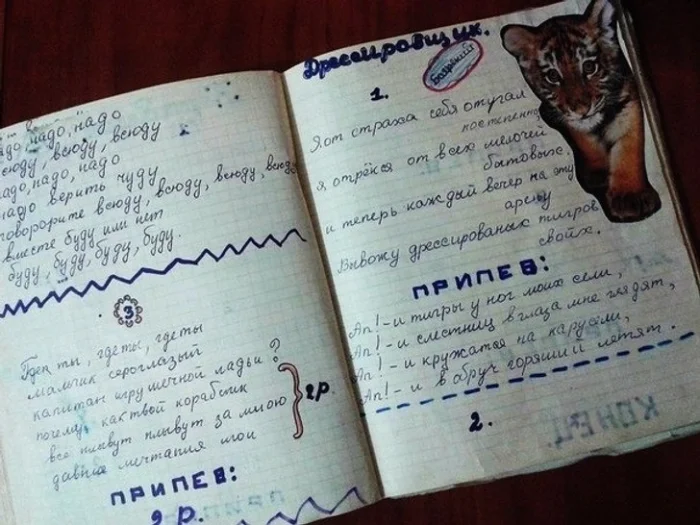 надо, надо, надо
всюду, всюду, всюду
надо, надо, надо
надо верить чуду
говорорите всюду, всюду, всюду, всюду
вместе буду или нет
буду, буду, буду, буду.
3
Где ты, где ты, где ты
мальчик сероглазый
капитан игрушечной ладьи?
почему как твой кораблик
все плывут плывут за мною
давние мечтания мои
2р
ПРИПЕВ:
2 р.
Дрессировщик.
Боярский
1.
Я от страха себя отугал
постепенно
я отрёкся от всех мелочей
бытовых.
и теперь каждый вечер на эту
арену
Вывожу дрессированых тигров
своих.
ПРИПЕВ:
Ап! - и тигры у ног моих сели,
Ап! - и слестниц в глаза мне глядят,
Ап! - и кружатся на карусели,
Ап! - и в обруч горящий летят.
2.
КОНЕЦ